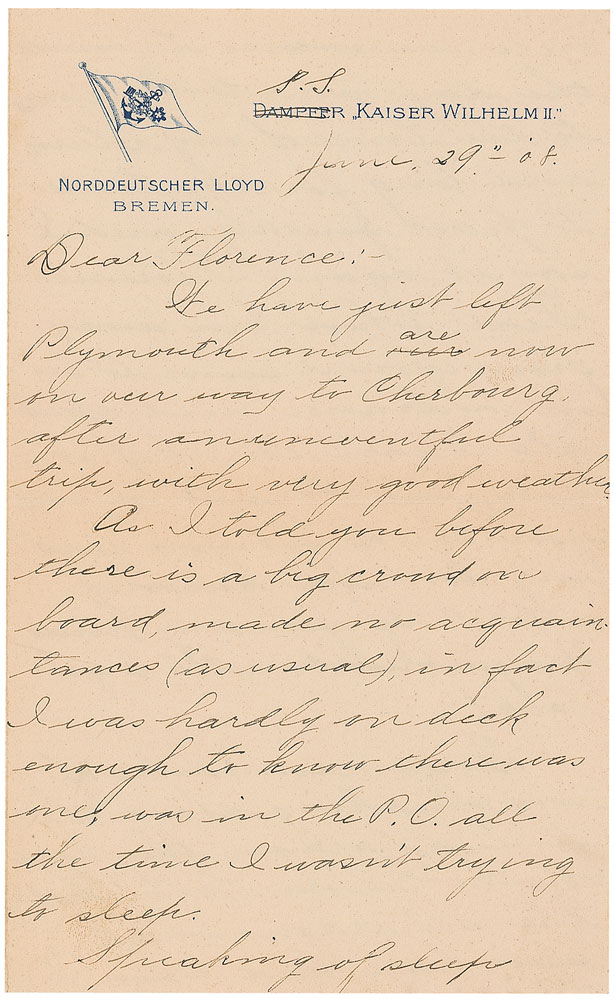 S.S.
DAMPFER „KAISER WILHELM II."
June, 29" - 08.
NORDDEUTSCHER LLOYD
BREMEN.
Dear Florence:-
We have just left
are
Plymouth and our now
on our way to Cherbourg,
after an uneventful
trip, with very good weather.
As I told you before
there is a big crowd on
board, made no acquain-
tances (as usual), in fact
I was hardly on deck
enough to know there was
one, was in the P.O. all
the time I wasn't trying
to sleep.
Speaking of sleep